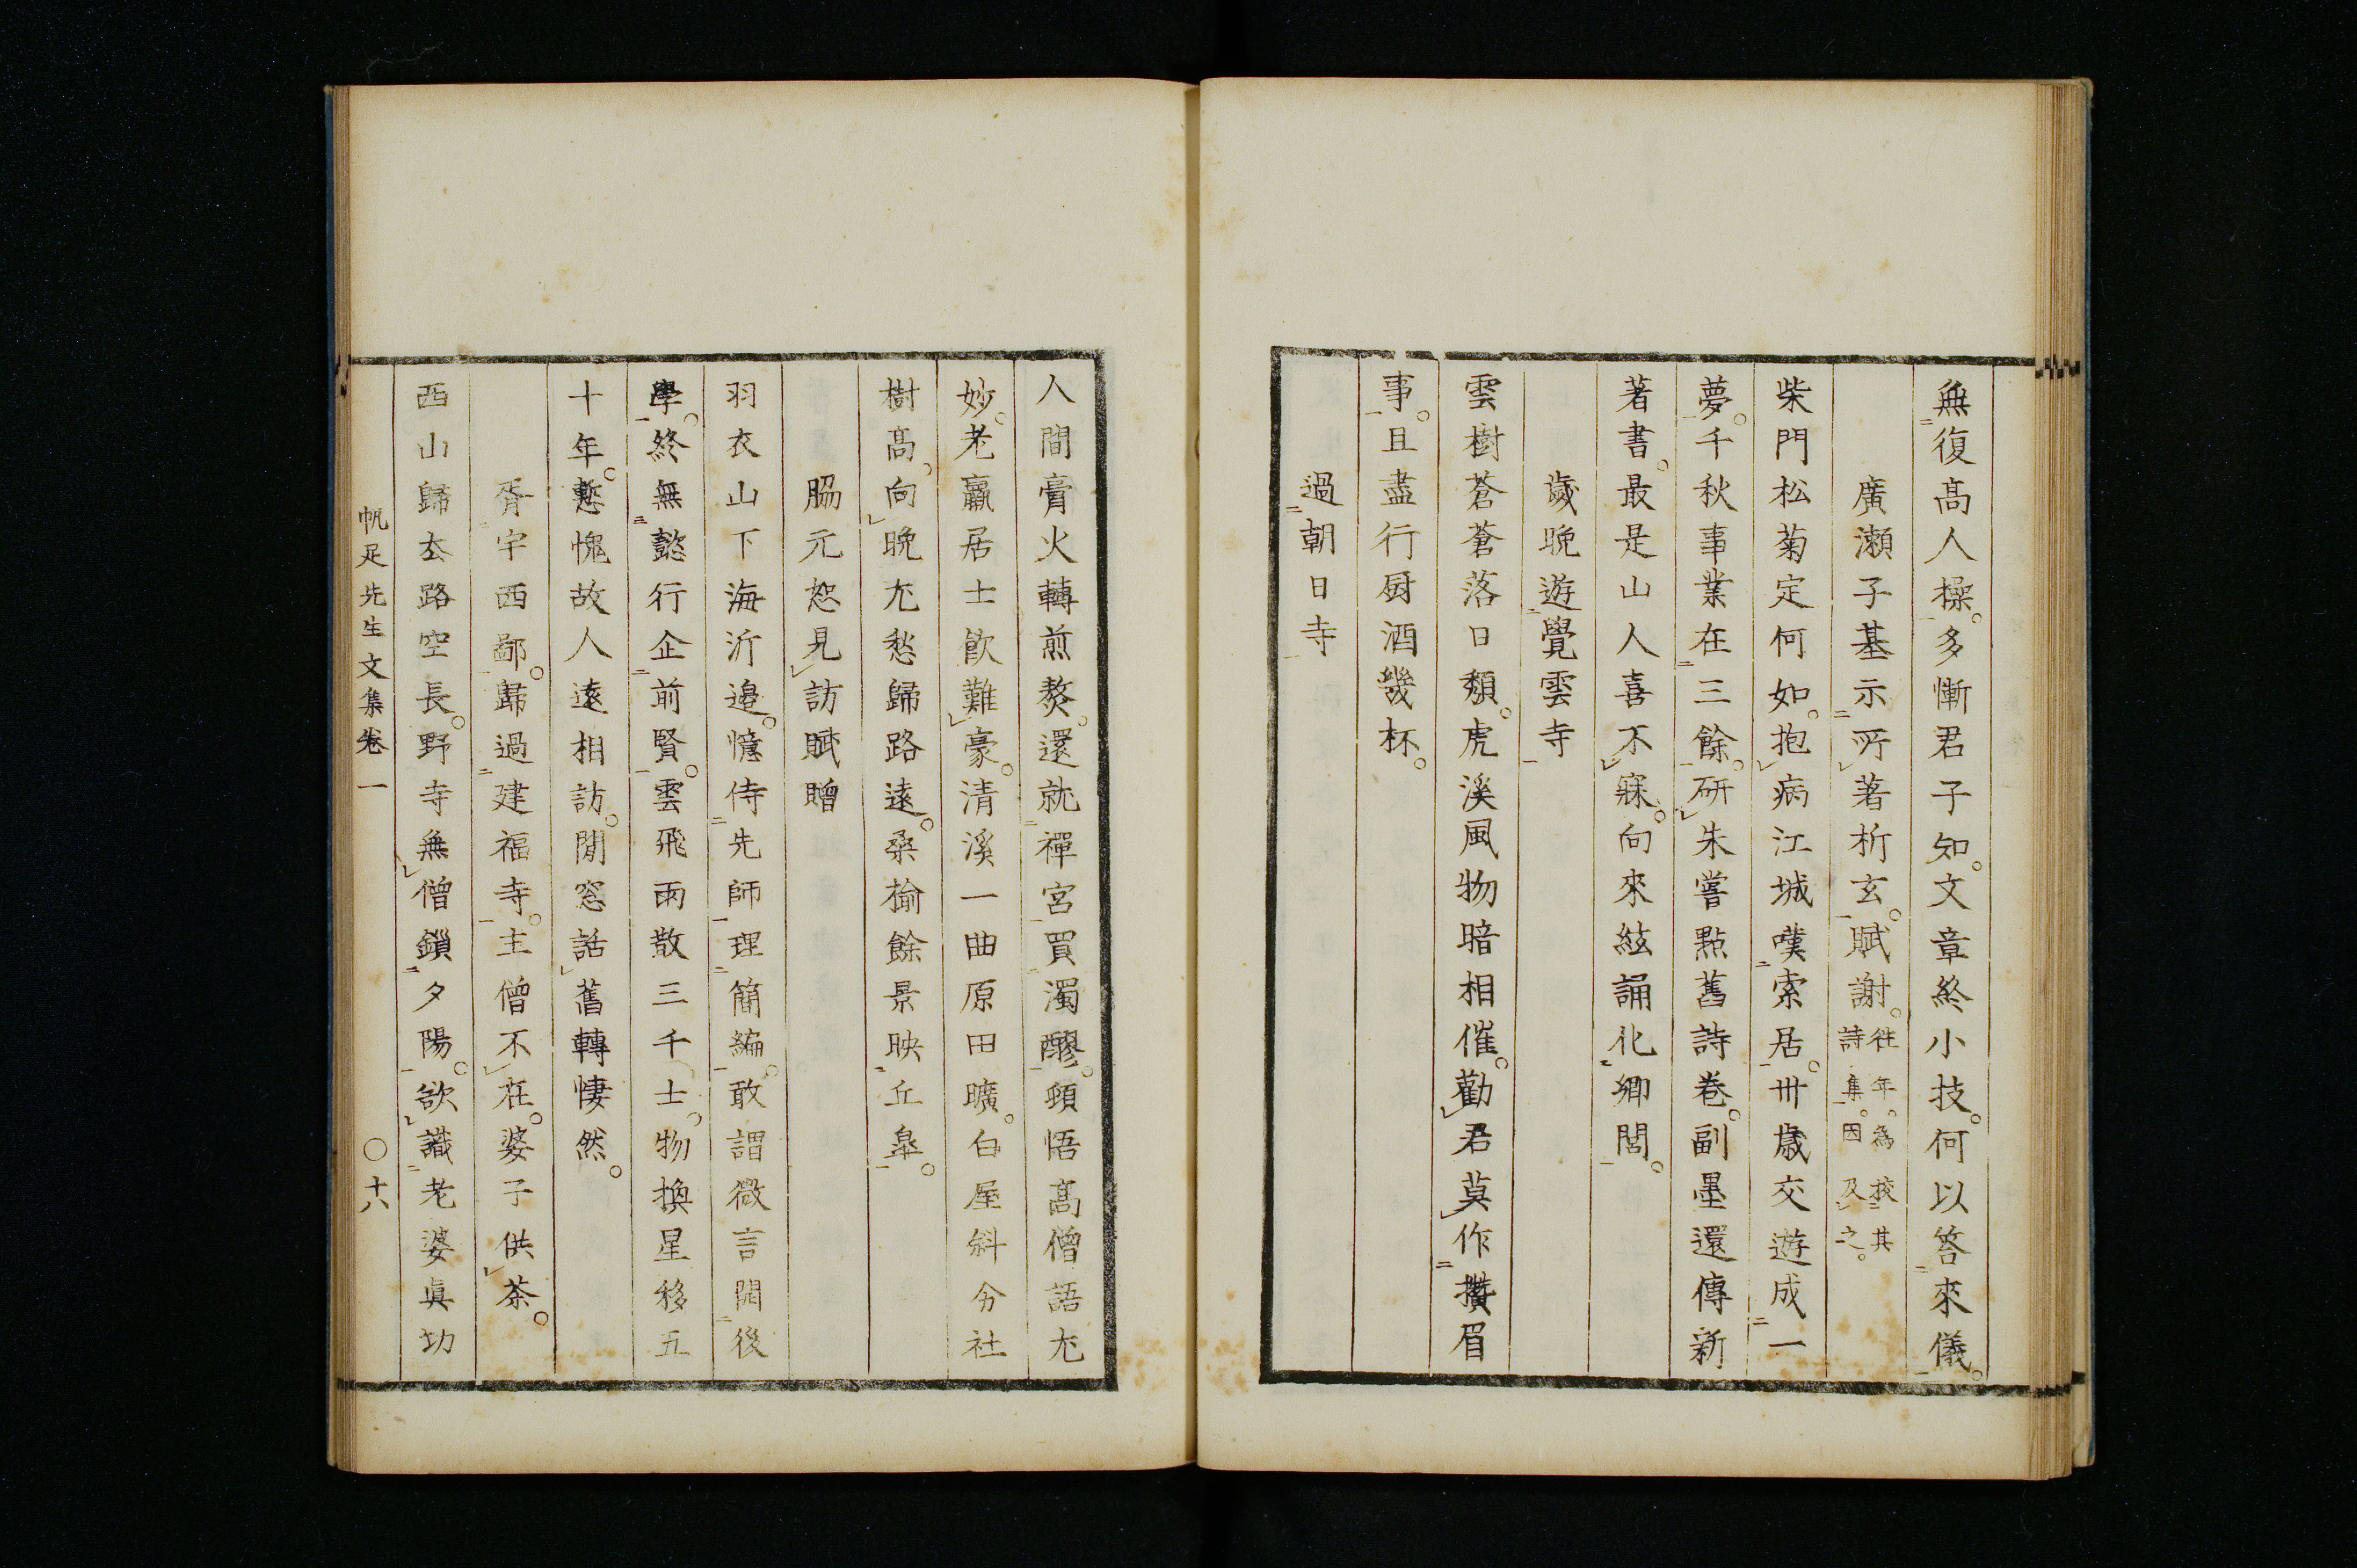 無復高人操。多慚君子知。文章終小技。何以答來儀。
廣瀬子基示所著析玄。賦謝。往年。為校其詩集。因及之。
柴門松菊定何如。抱病江城嘆索居。卅歲交遊成一
夢。千秋事業在三餘。研朱嘗點舊詩卷。副墨還傳新
著書。最是山人喜不寐。向來絃誦化鄉閭。
歲晚遊覺雲寺
雲樹蒼蒼落日頹。虎溪風物暗相催。勸君莫作攢眉
事。且盡行厨酒幾杯。
過朝日寺
人間膏火轉煎熬。還就禪宮買濁醪。頓悟高僧語尢
妙。老羸居士飲難豪。清溪一曲原田曠。白屋斜分社
樹高。向晚尢愁歸路遠。桑榆餘景映丘皐。
脇元恕見訪賦贈
羽衣山下海沂邉。憶侍先師理簡編。敢謂微言開後
學。終無懿行企前賢。雲飛雨散三千士。物換星移五
十年。慙愧故人遠相訪。閒窓話舊轉悽然。
胥宇西鄙。歸過建福寺。主僧不在。婆子供茶。
西山歸去路空長。野寺無僧鎖夕陽。欲識老婆眞功
帆足先生文集卷一 〇十八